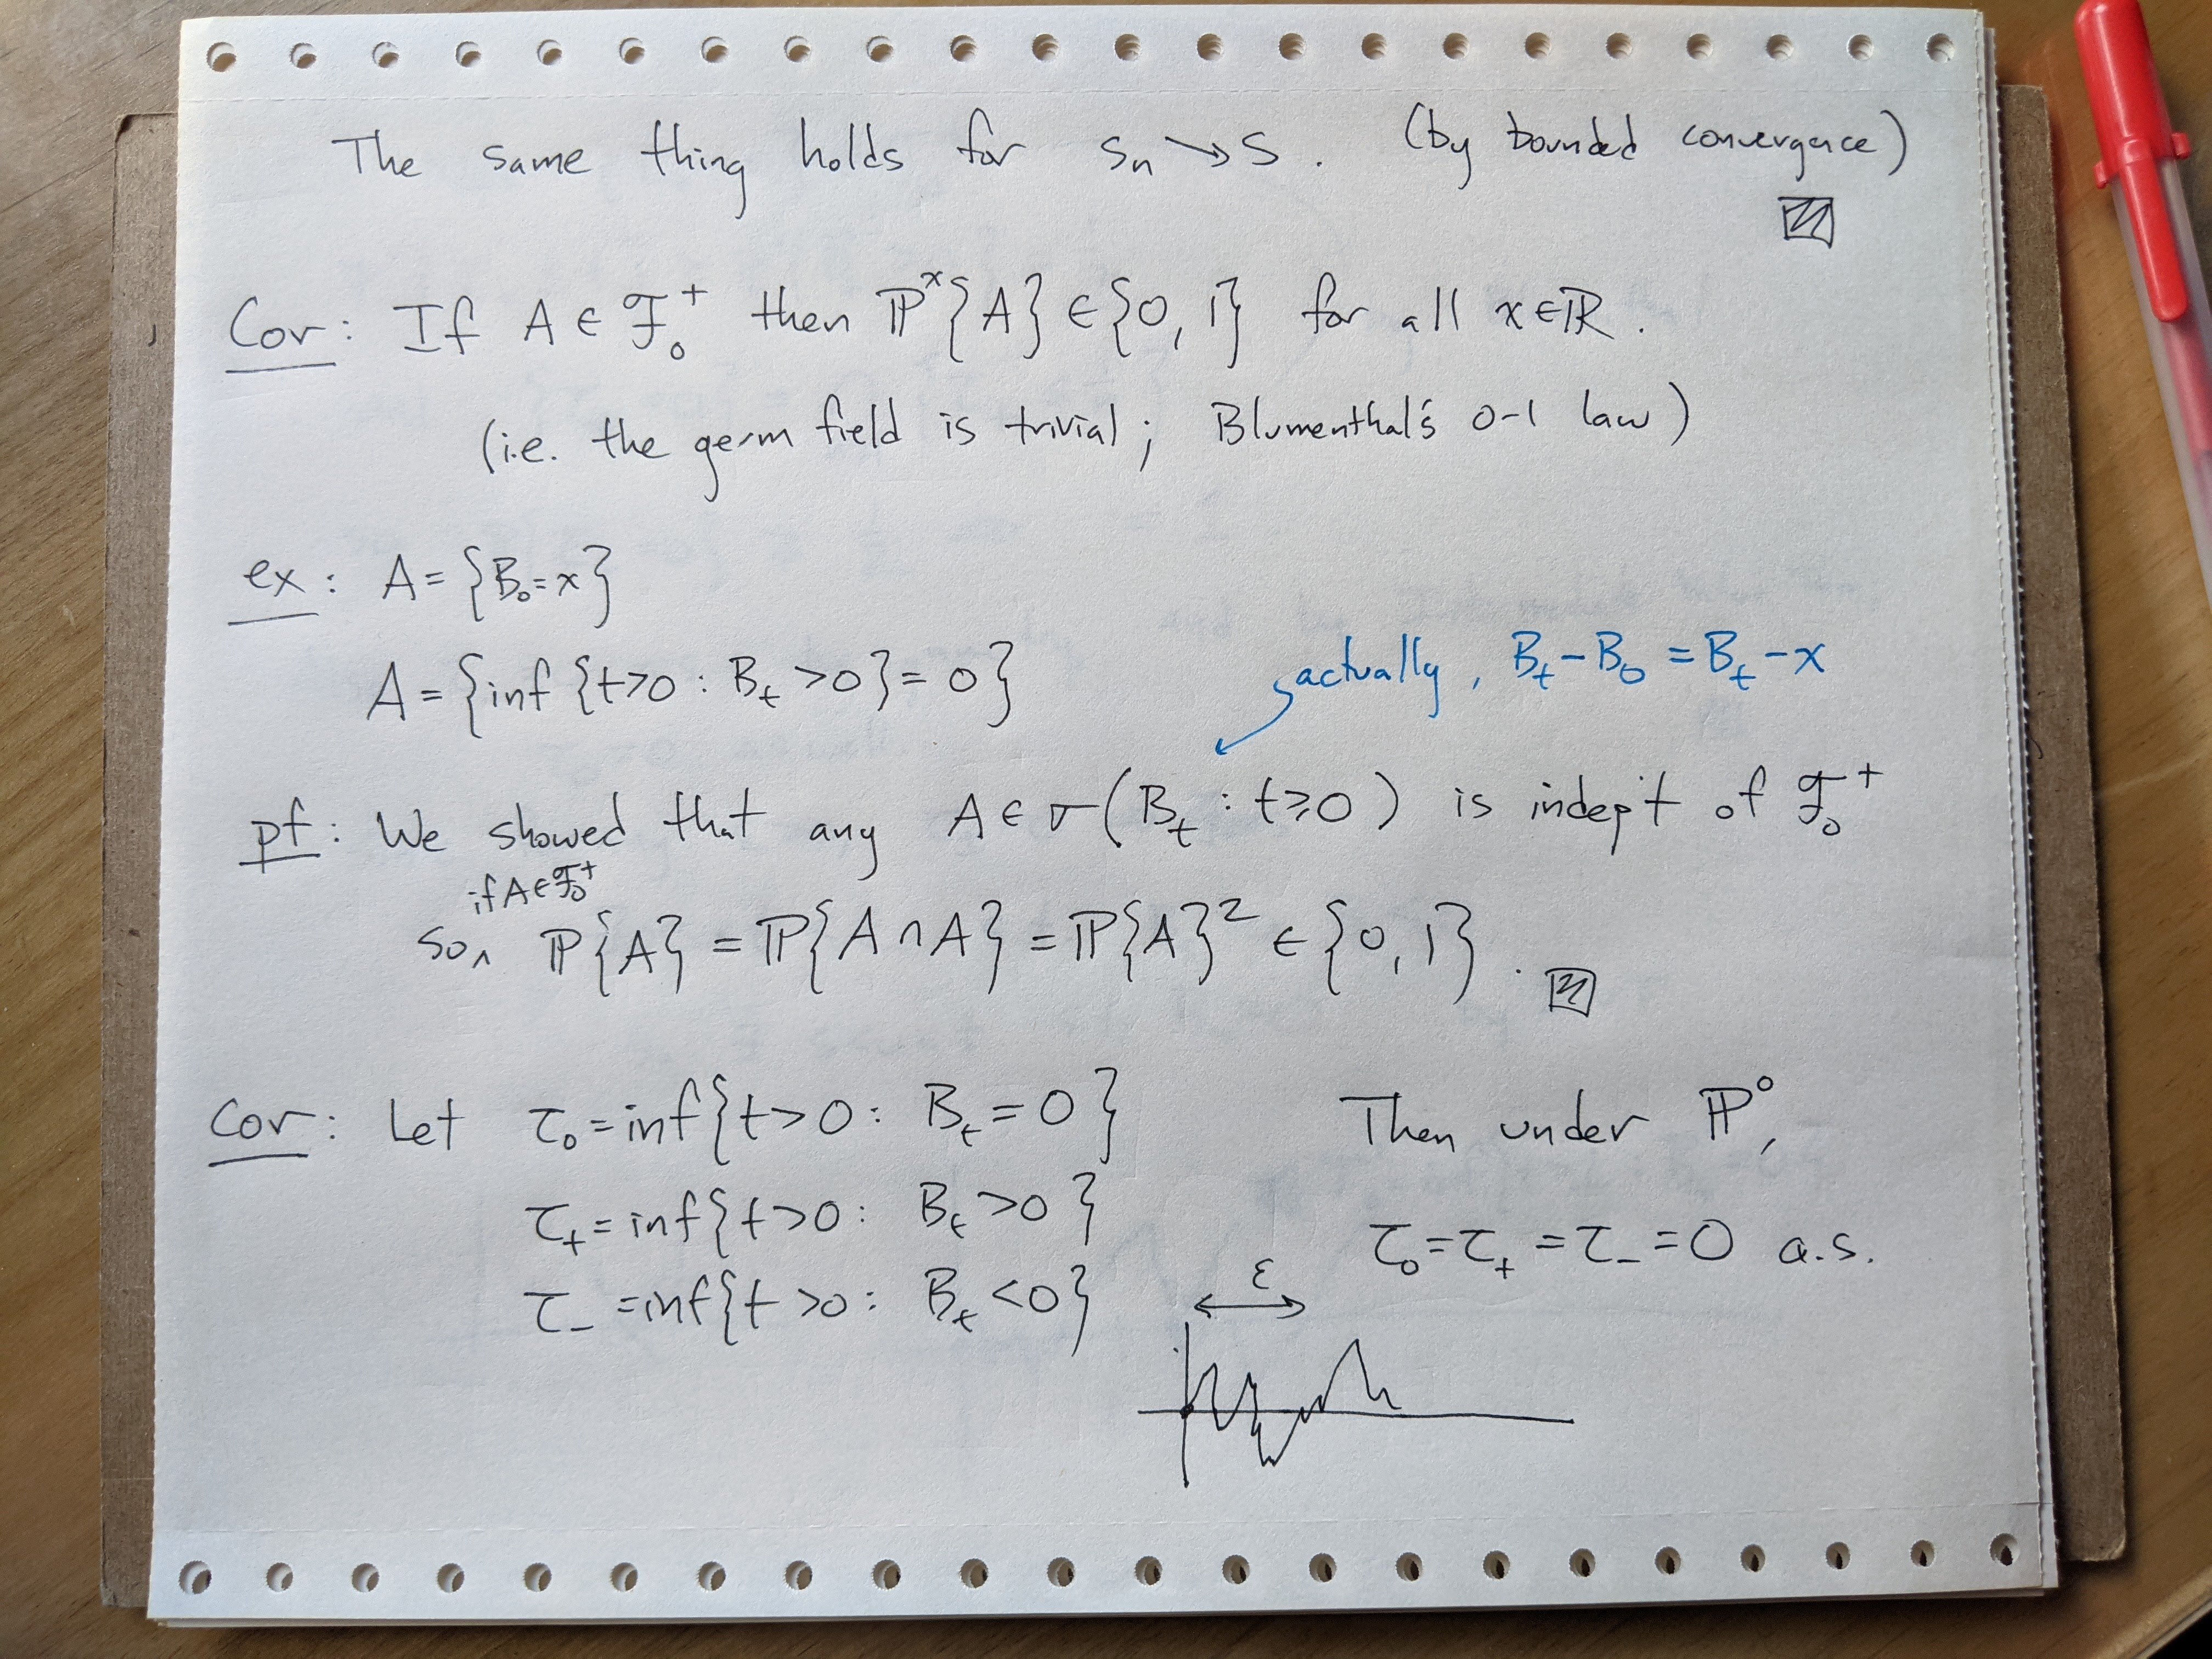 The same thing holds for sₙ ↘ s. (by bounded convergence)
Cor: If A ∈ ℱ₀⁺ then ℙˣ{A} ∈ {0,1} for all x ∈ ℝ.
(i.e. the germ field is trivial; Blumenthal's 0-1 law)
ex: A = {B₀ = x}
A = {inf {t>0 : Bₜ >0} = 0}
actually, Bₜ - B₀ = Bₜ - x
pf: We showed that any A ∈ σ(Bₜ : t ≥ 0) is indep't of ℱ₀⁺
if A ∈ ℱ₀⁺
so ∧ ℙ{A} = ℙ{A ∩ A} = ℙ{A}² ∈ {0,1}.
Cor: Let τ₀ = inf{t>0 : Bₜ = 0} Then under ℙ⁰,
τ₊ = inf{t>0 : Bₜ >0}
τ₀ = τ₊ = τ₋ = 0 a.s.
τ₋ = inf{t>0 : Bₜ <0}
ε